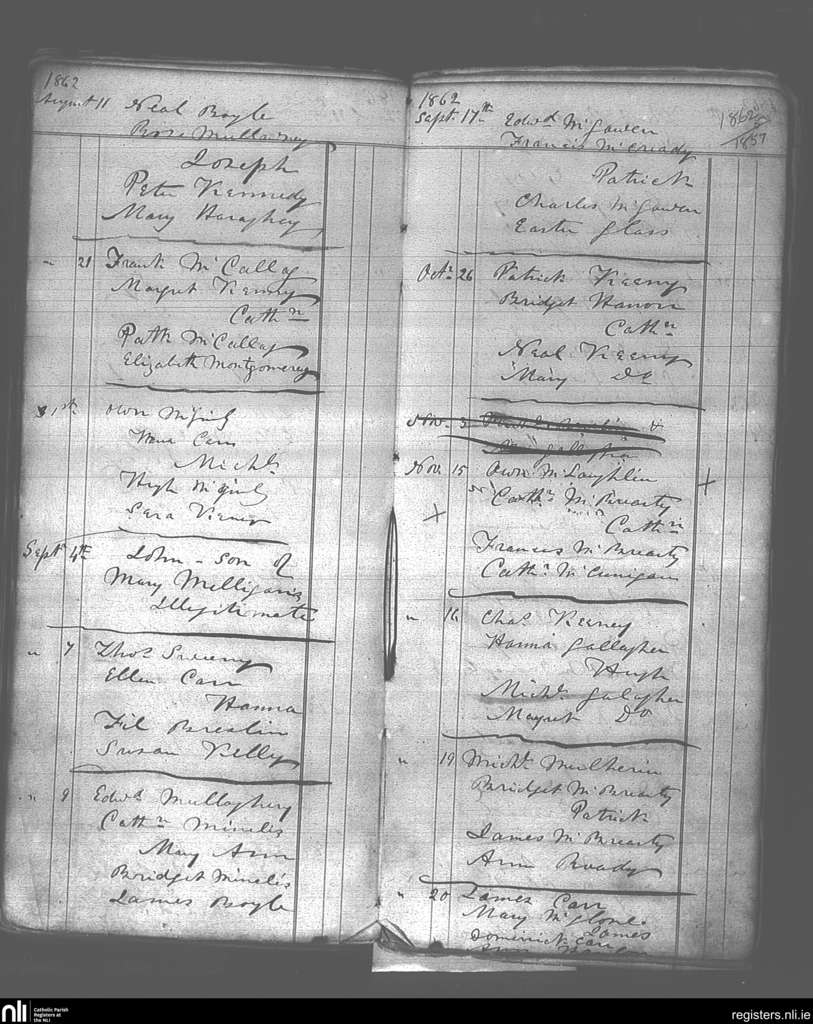 1862
August 11 Neal Boyle
Rose Mullaney
Joseph
Peter Kennedy
Mary Haraghey
" 21 Frank McCallag
Margret Kenny
Cathn
Patk McCallag
Elizabeth Montgomerey
31st Own
Carr
Michl
Hugh
Sera
Sept 4th John - son of
Mary Milligane
Illegitimate
" 7 Thos Sweeny
Ellen Carr
Hanna
Fil Breslin
Susan Kelly
" 9 Edwd Mullaghery
Cathn Minelis
May Ann
Bridget Minelis
James Boyle
1862
Sept 17th Edwd McGowen
Francis McCready
Patrick
Charles McGowen
Easter Glass
1862
1857
Octr 26 Patrick Keeny
Bridget Hanon
Cathn
Neal Keeny
Mary Do
Nov. 3
Nov. 15 Own McLaughlin
Cathn McBrearty
Cathn
Francis McBrearty
Cathn McCunigan
" 16 Chas Keeney
Hanna Gallagher
Hugh
Michl Galagher
Magret Do
" 19 Michl Mulherin
Bridget McBrearty
Patrick
James McBrearty
Ann Roady
" 20 James Carr
Mary McGlone
James
Dominick Carr
nli Catholic Parish Registers at the NLI
registers.nli.ie